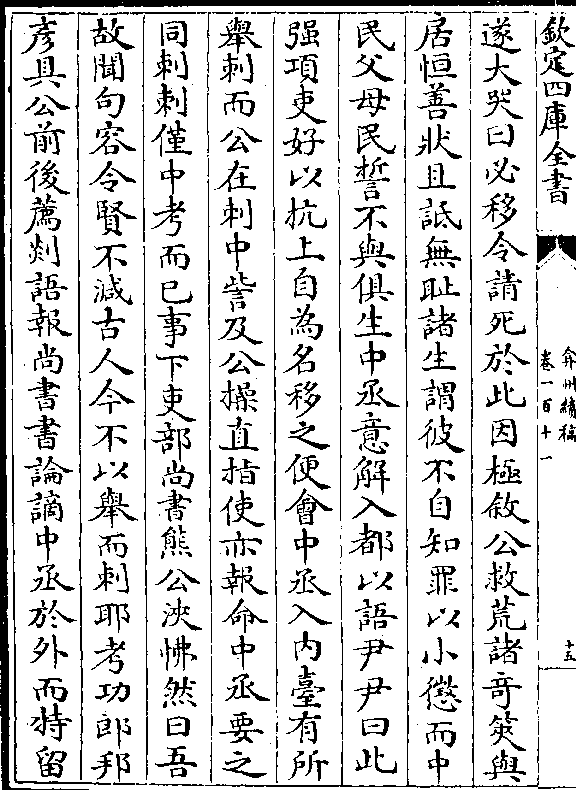 欽定四庫全書
弇州續稿
卷一百十一
十五
遂大哭曰必移令請死於此因極敘公救荒諸奇筴與
居恒善狀且詆無耻諸生謂彼不自知罪以小懲而中
民父母民誓不與俱生中丞意解入都以語尹尹曰此
强項吏好以抗上自為名移之便會中丞入内臺有所
舉刺而公在刺中訾及公操直指使亦報命中丞要之
同刺刺僅中考而已事下吏部尚書熊公浹怫然曰吾
故聞句容令賢不減古人今不以舉而刺耶考功郎邦
彦具公前後薦剡語報尚書書論謫中丞於外而特留